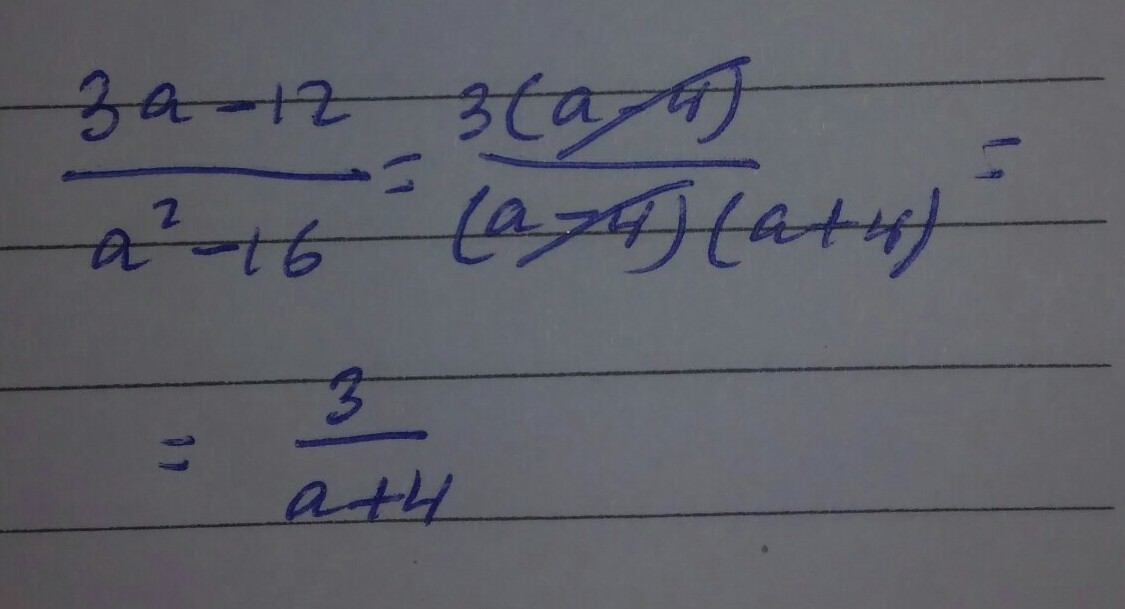 3a-12/a²-16 = 3(a-4)/(a-4)(a+4) =
= 3/a+4